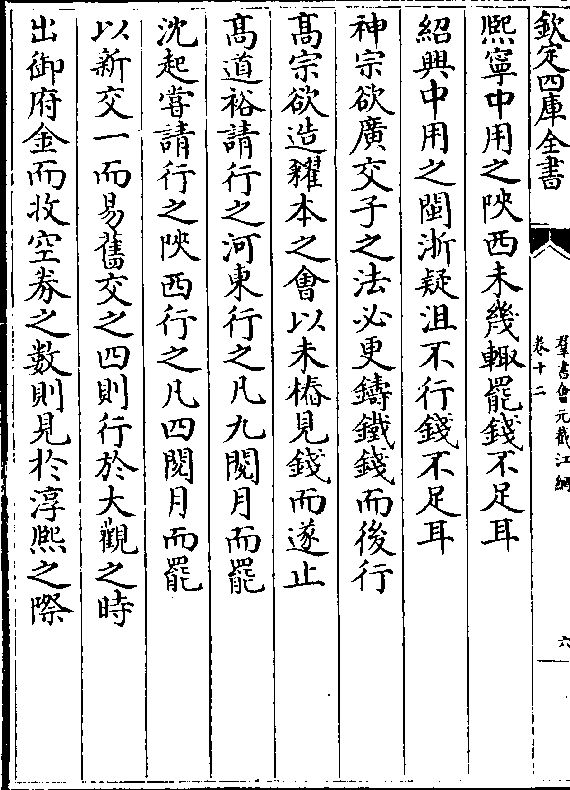 欽定四庫全書
羣書會元截江網
卷十二
六
熙寧中用之陝西未幾輙罷錢不足耳
紹興中用之閩浙疑沮不行錢不足耳
神宗欲廣交子之法必更鑄鐵錢而後行
髙宗欲造糴本之會以未樁見錢而遂止
髙道裕請行之河東行之凡九閱月而罷
沈起嘗請行之陜西行之凡四閱月而罷
以新交一而易舊交之四則行於大觀之時
出御府金而收空券之數則見於淳熈之際